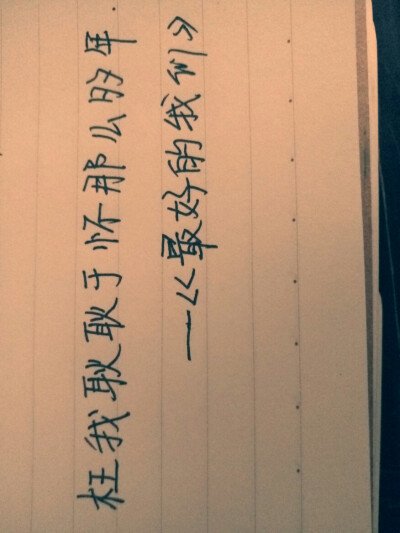 枉我耿耿于怀那么的年.
—《最好的我们》